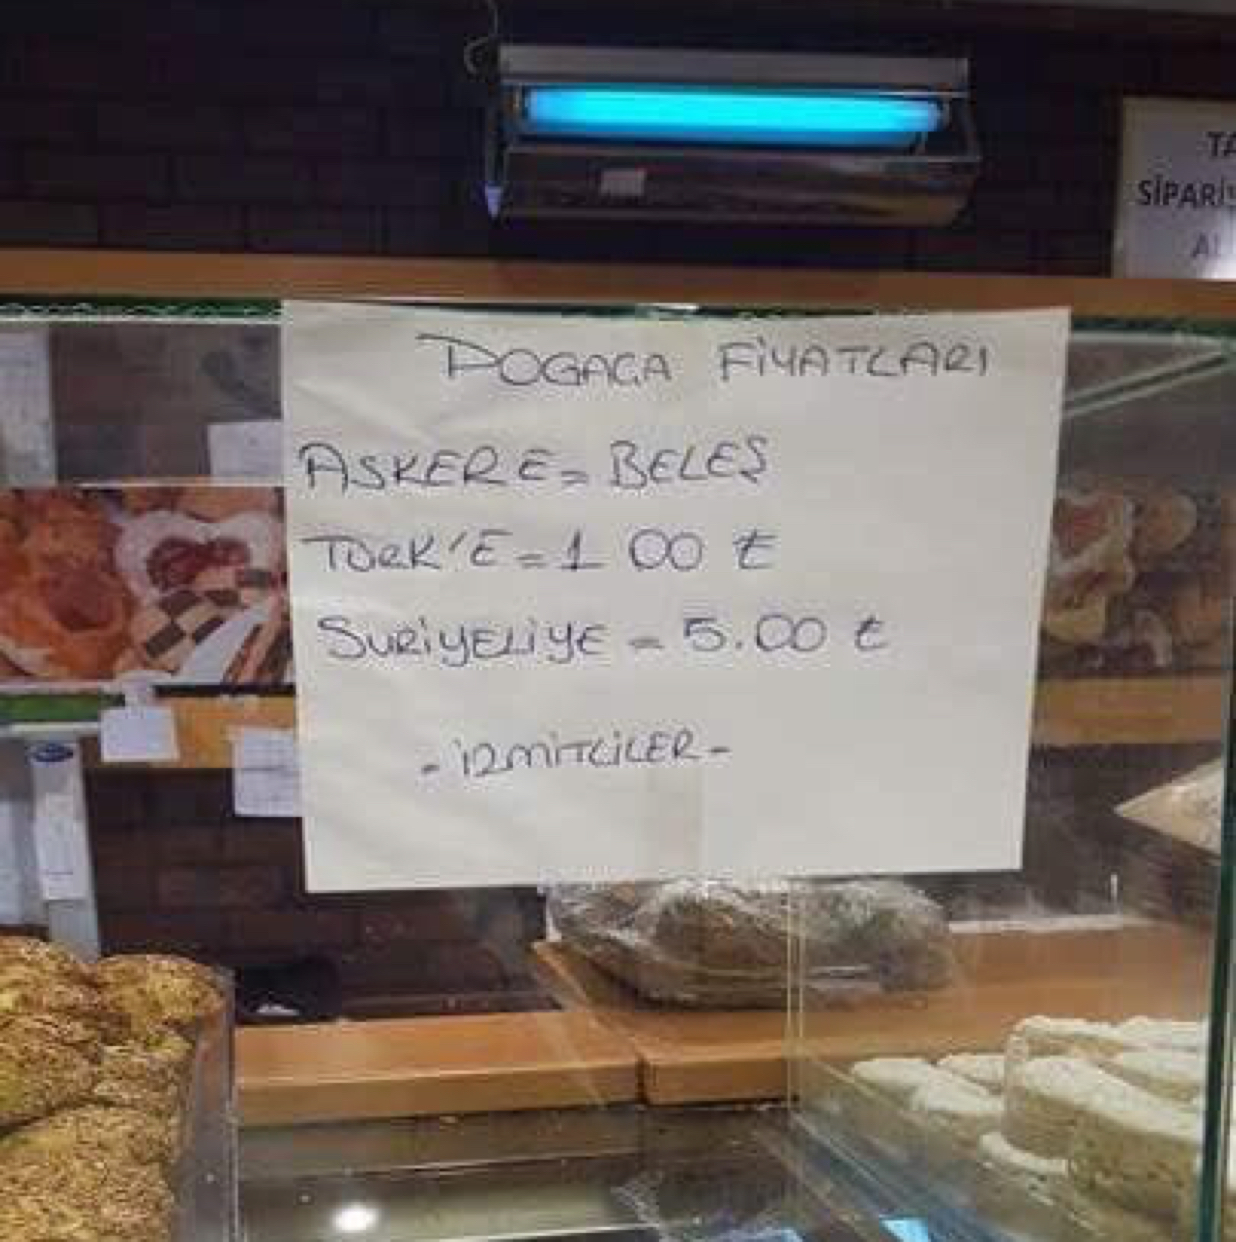 POGAÇA FİYATLARI
ASKERE = BELEŞ
TÜRK'E = 1 00 ₺
SURİYELİYE = 5.00 ₺
- İZMİTLİLER -
SİPARİŞ